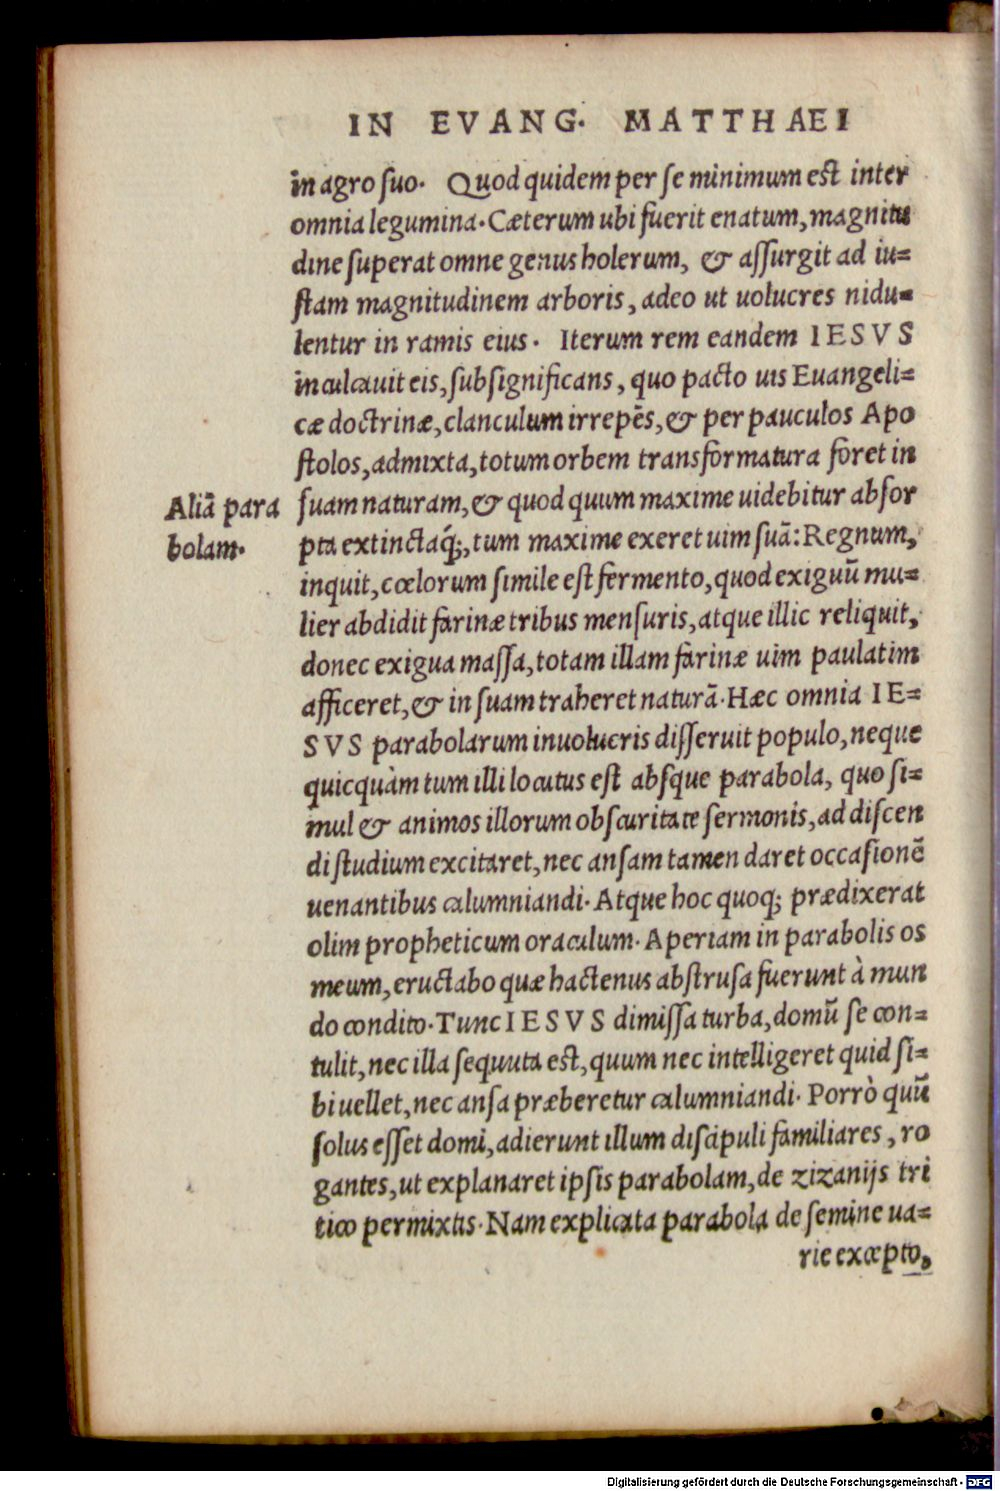 IN EVANG. MATTHAEI
in agro suo. Quod quidem per se minimum est inter
omnia legumina. Cæterum ubi fuerit enatum, magnitu
dine superat omne genus holerum, & assurgit ad iu=
stam magnitudinem arboris, adeo ut uolucres nidu=
lentur in ramis eius. Iterum rem eandem IESVS
inculcauit eis, subsignificans, quo pacto uis Euangeli=
cæ doctrinæ, clanculum irrepẽs, & per pauculos Apo
stolos, admixta, totum orbem transformatura foret in
Aliã para
bolam.
suam naturam, & quod quum maxime uidebitur absor
pta extinctaq́;, tum maxime exeret uim suã: Regnum,
inquit, cœlorum simile est fermento, quod exiguũ mu=
lier abdidit farinæ tribus mensuris, atque illic reliquit,
donec exigua massa, totam illam farinæ uim paulatim
afficeret, & in suam traheret naturã. Hæc omnia IE=
SVS parabolarum inuolucris disseruit populo, neque
quicquàm tum illi locutus est absque parabola, quo si=
mul & animos illorum obscuritate sermonis, ad discen
di studium excitaret, nec ansam tamen daret occasionẽ
uenantibus calumniandi. Atque hoc quoq; prædixerat
olim propheticum oraculum. Aperiam in parabolis os
meum, eructabo quæ hactenus abstrusa fuerunt à mun
do condito. Tunc IESVS dimissa turba, domũ se con=
tulit, nec illa sequuta est, quum nec intelligeret quid si=
bi uellet, nec ansa præberetur calumniandi. Porrò quũ
solus esset domi, adierunt illum discipuli familiares, ro
gantes, ut explanaret ipsis parabolam, de zizanijs tri
tico permixtis. Nam explicata parabola de semine ua=
rie excepto,
Digitalisierung gefördert durch die Deutsche Forschungsgemeinschaft - DFG